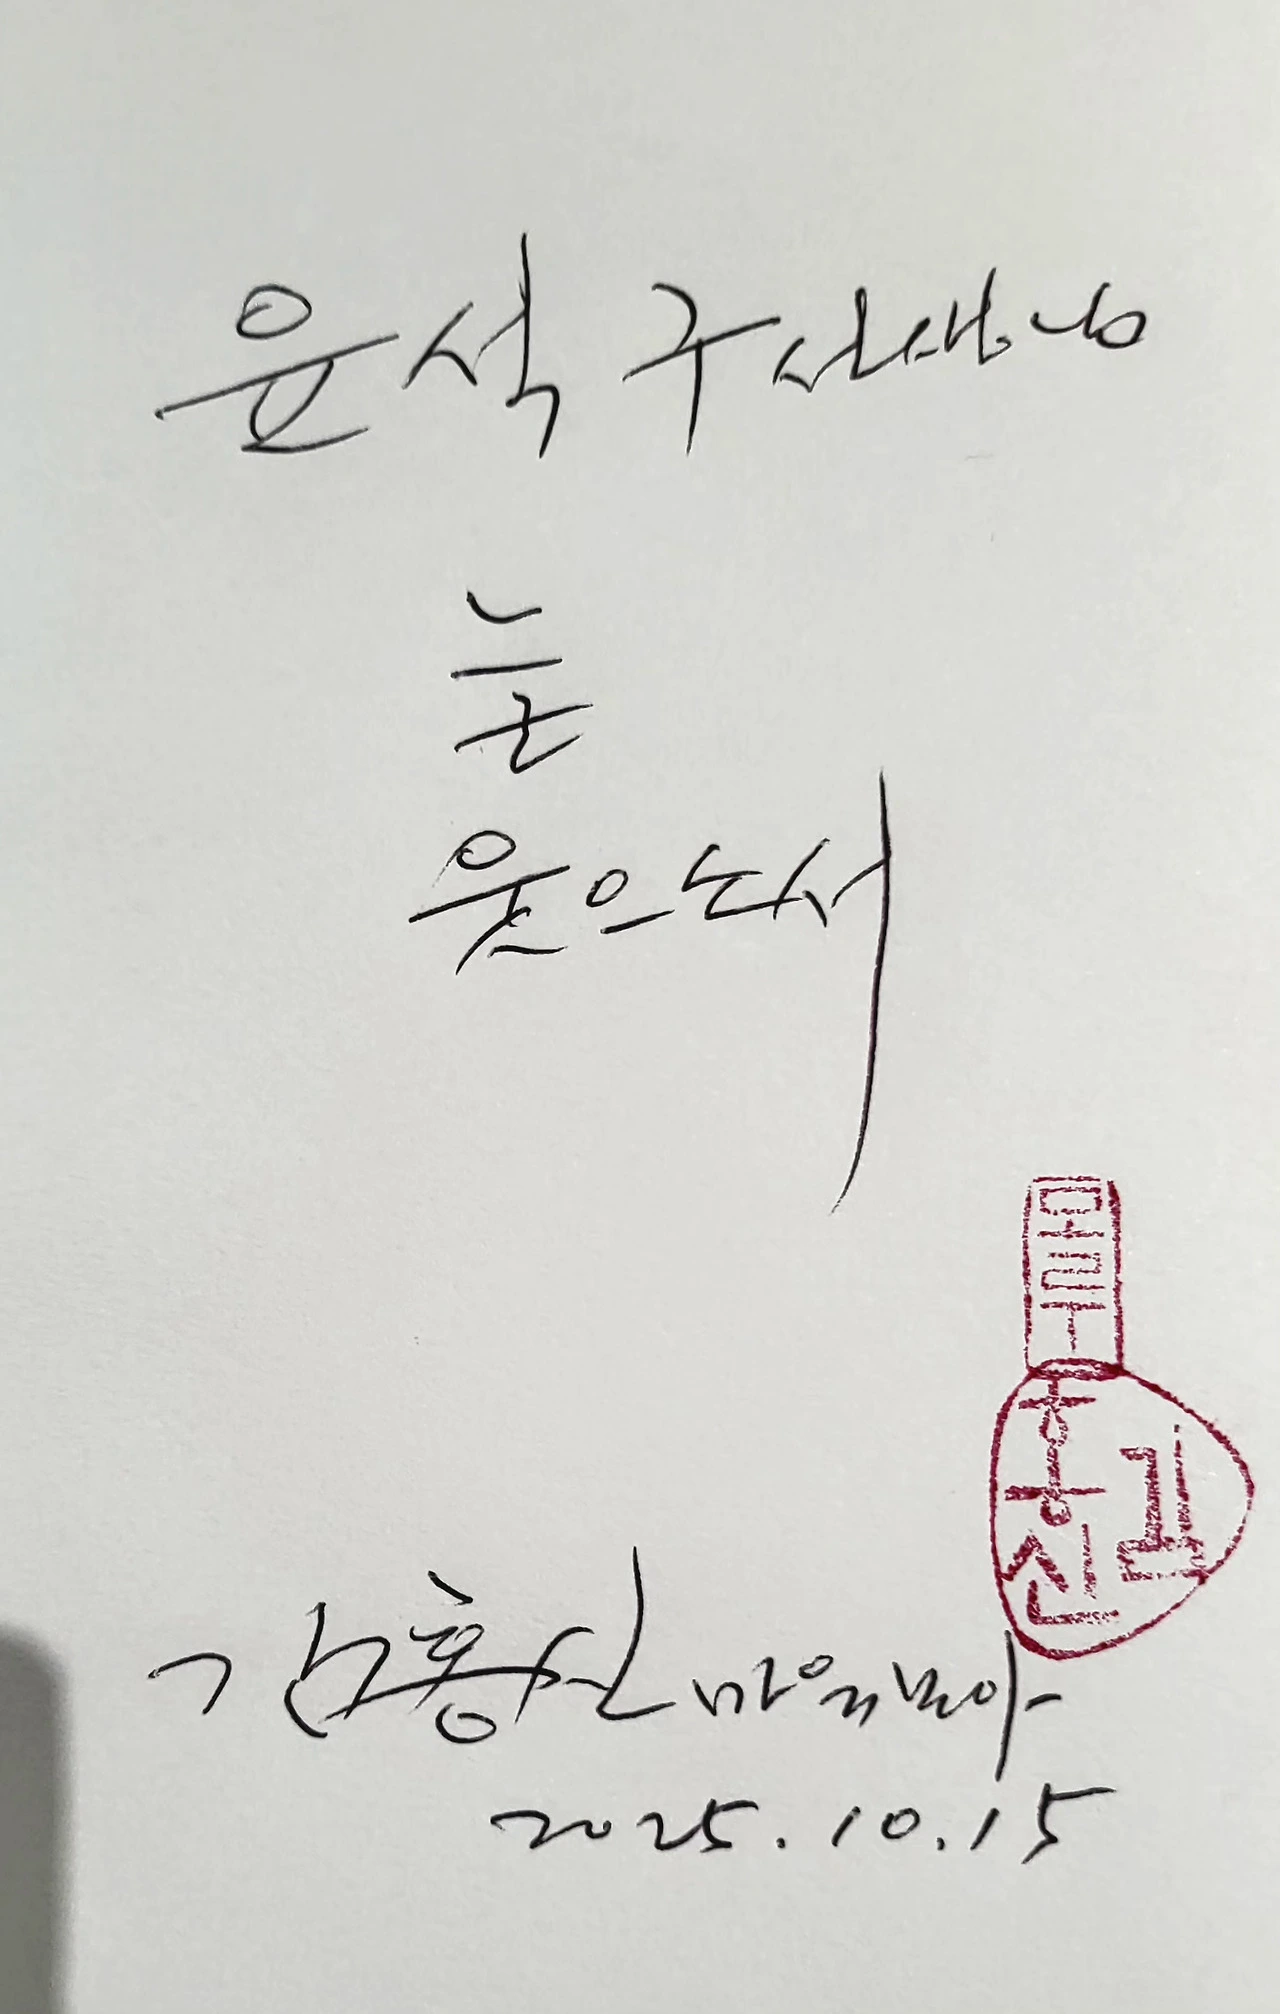 윤석구 선생님
늘
웃으소서
모루
김홍신
김홍신 마음 모아
2025.10.15